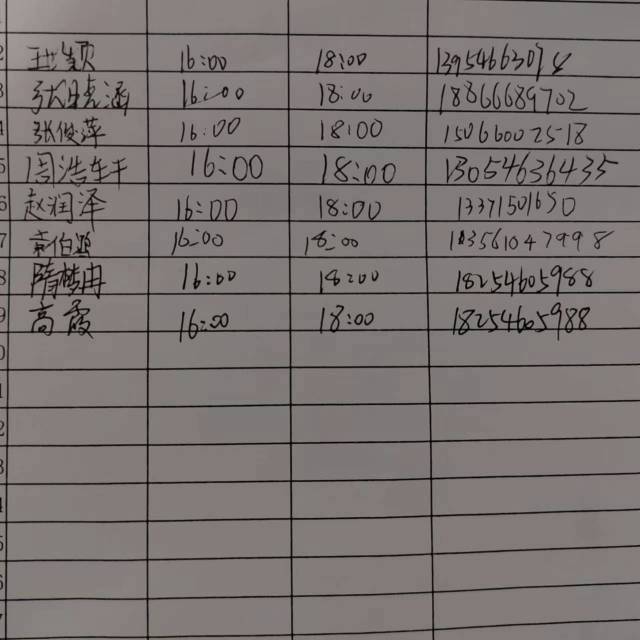 2 16:00 18:00
3 张晓涵 16:00 18:00 18866689702
4 张俊萍 16:00 18:00 15066002518
5 周浩 16:00 18:00 13054636435
6 赵润泽 16:00 18:00 13371501650
7 袁伯 16:00 18:00
8 隋 冉 16:00 18:00 18254605988
9 高霞 16:00 18:00 18254605988
0
1
2
3
4
5
6
7